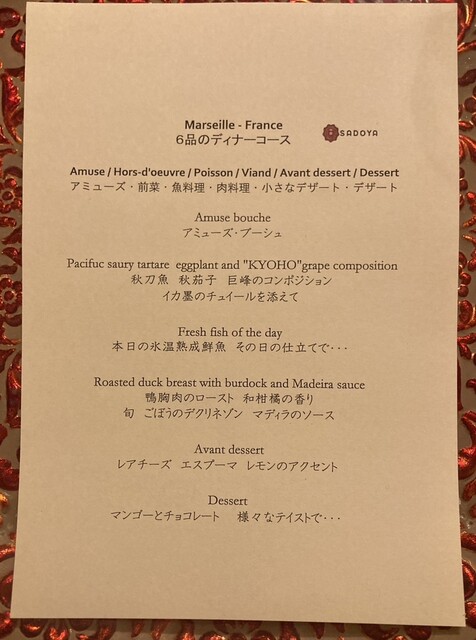 Marseille - France
SADOYA
６品のディナーコース
Amuse / Hors-d'oeuvre / Poisson / Viand / Avant dessert / Dessert
アミューズ・前菜・魚料理・肉料理・小さなデザート・デザート
Amuse bouche
アミューズ・ブーシュ
Pacifuc saury tartare eggplant and "KYOHO"grape composition
秋刀魚 秋茄子 巨峰のコンポジション
イカ墨のチュイールを添えて
Fresh fish of the day
本日の氷温熟成鮮魚 その日の仕立てで・・・
Roasted duck breast with burdock and Madeira sauce
鴨胸肉のロースト 和柑橘の香り
旬 ごぼうのデクリネゾン マディラのソース
Avant dessert
レアチーズ エスプーマ レモンのアクセント
Dessert
マンゴーとチョコレート 様々なテイストで・・・